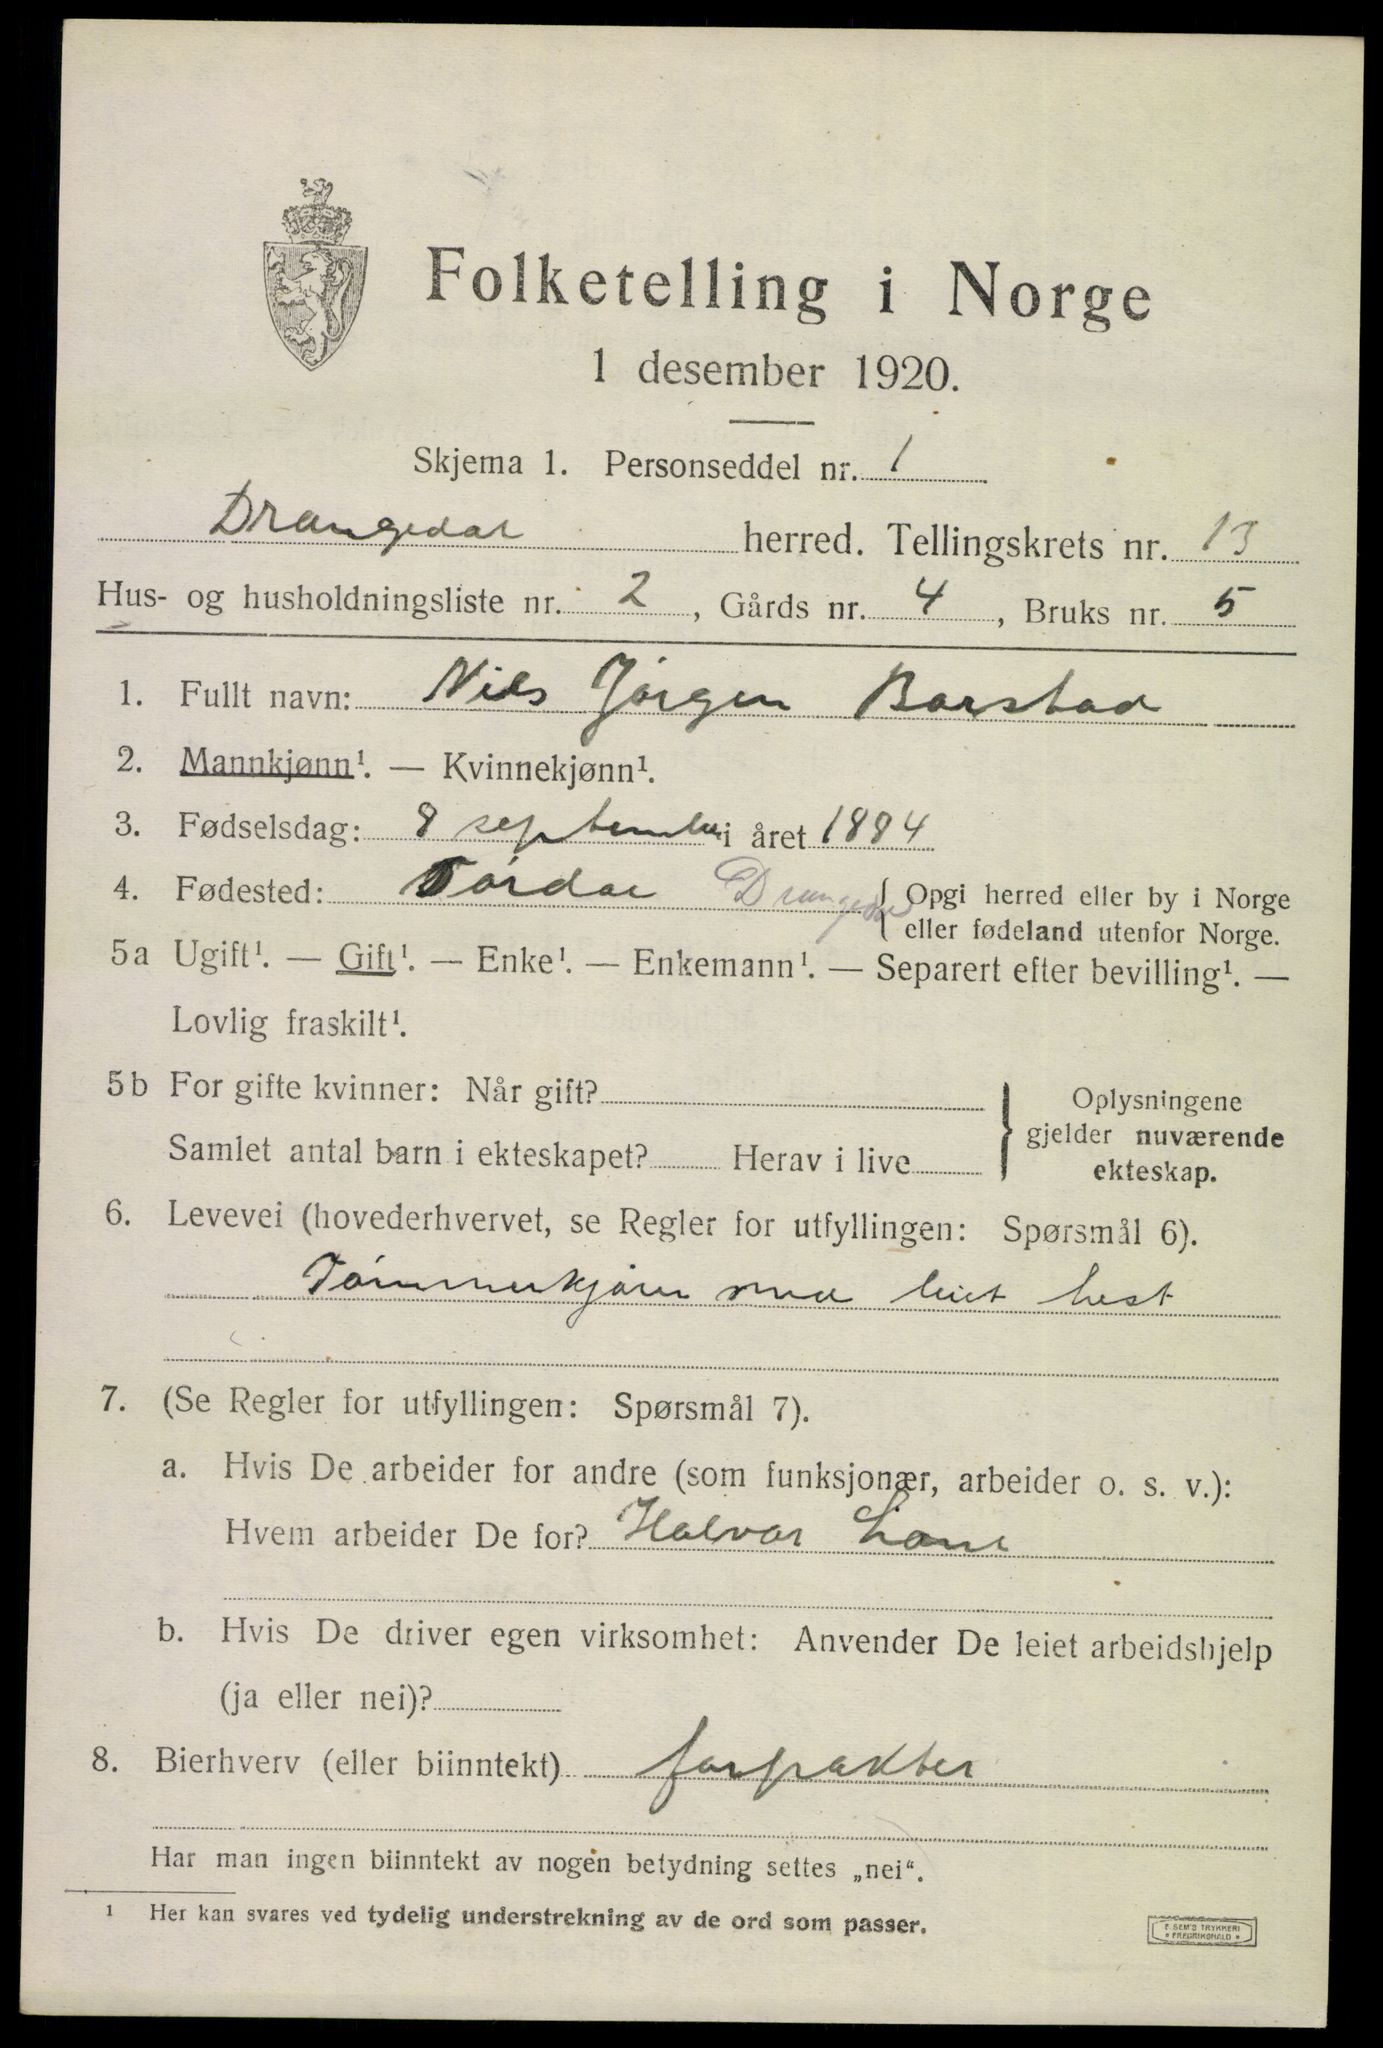 Folketelling i Norge
1 desember 1920.
Skjema 1. Personseddel nr. 1
Drangedal herred. Tellingskrets nr. 13
Hus- og husholdningsliste nr. 2, Gårds nr. 4, Bruks nr. 5
1. Fullt navn: Nils Jörgen Barstad
2. Mannkjønn¹. — Kvinnekjønn¹.
3. Fødselsdag: 8 september i året 1884
4. Fødested: Tórdal Drangedal { Opgi herred eller by i Norge
eller fødeland utenfor Norge.
5a Ugift¹. — Gift¹. — Enke¹. — Enkemann¹. — Separert efter bevilling¹. —
Lovlig fraskilt¹.
5b For gifte kvinner: Når gift?
Samlet antal barn i ekteskapet? Herav i live
} Oplysningene
gjelder nuværende
ekteskap.
6. Levevei (hovederhvervet, se Regler for utfyllingen: Spørsmål 6).
Tómmerkjórer med leiet hest
7. (Se Regler for utfyllingen: Spørsmål 7).
a. Hvis De arbeider for andre (som funksjonær, arbeider o. s. v.):
Hvem arbeider De for? Halvor
b. Hvis De driver egen virksomhet: Anvender De leiet arbeidshjelp
(ja eller nei)?
8. Bierhverv (eller biinntekt) forpakter
Har man ingen biinntekt av nogen betydning settes „nei“.
¹ Her kan svares ved tydelig understrekning av de ord som passer.
F. SEM'S TRYKKERI
* FREDRIKSHALD *